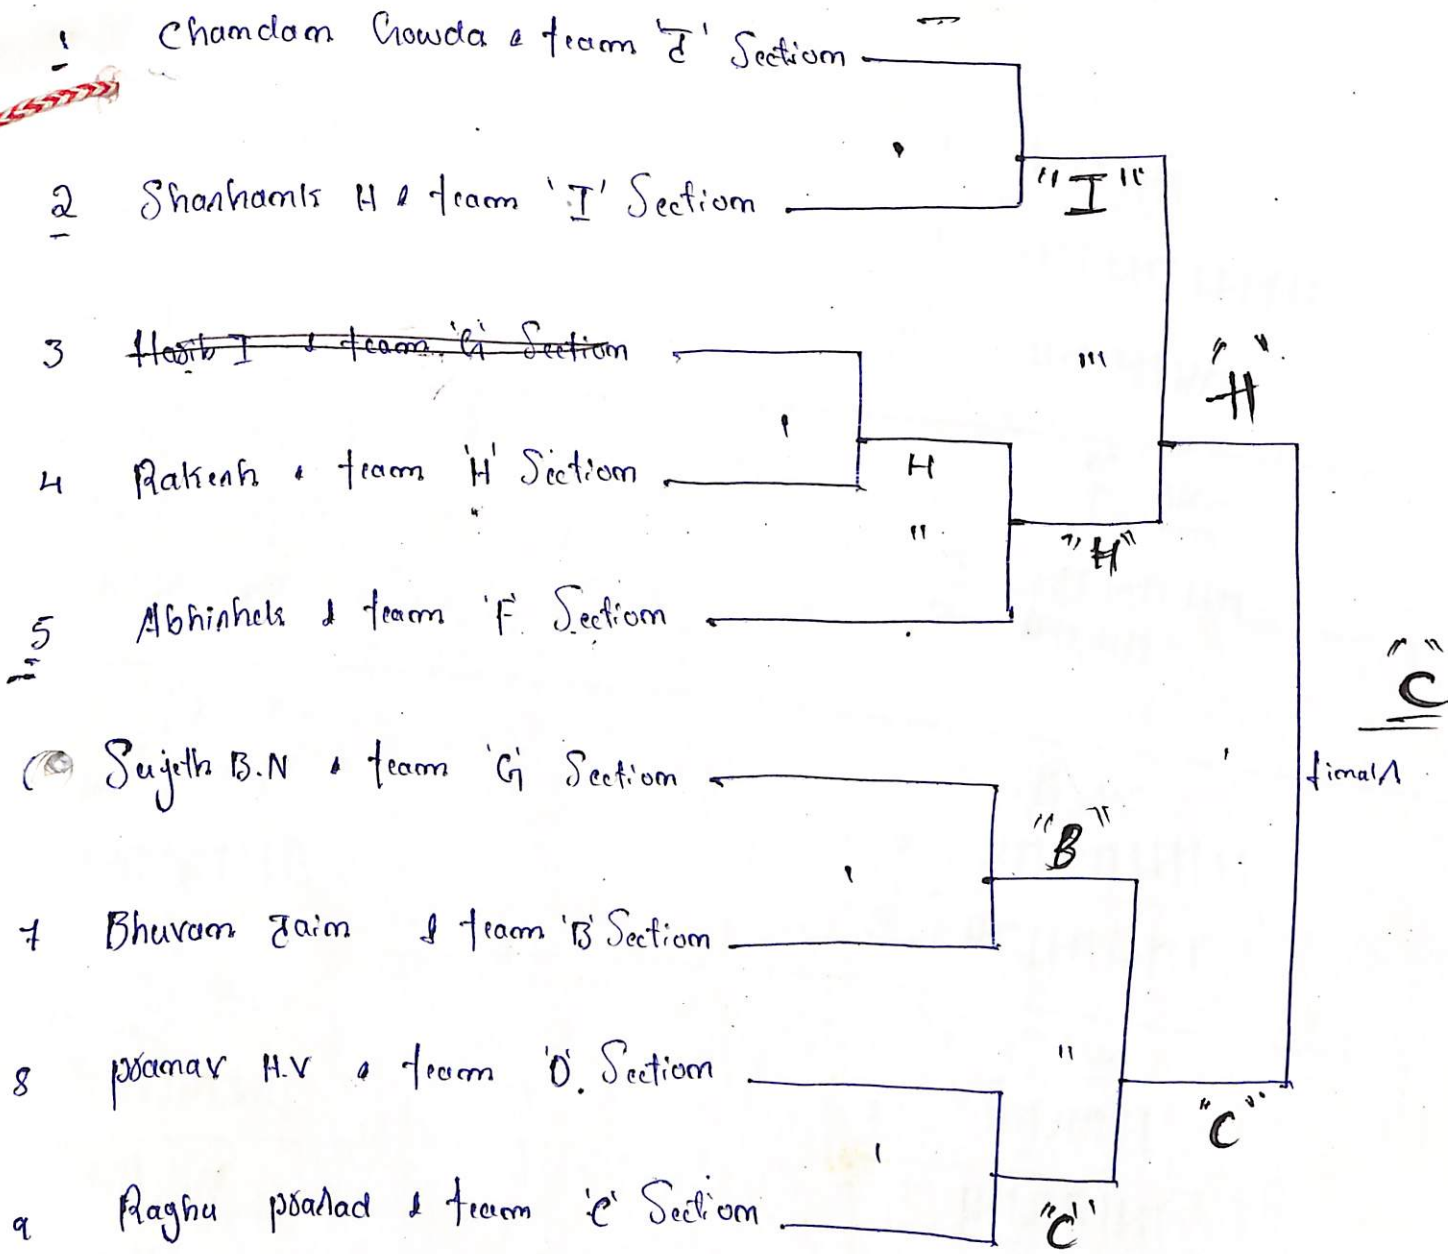 1 Chamdam Gowda & team 'J' Section
2 Shashamk H & team 'I' Section
"I"
3 Hasib I & team 'G' Section
"H"
4 Rakesh & team 'H' Section
H
"H"
5 Abhishek & team 'F' Section
"C"
finals
Sujeth B.N & team 'G' Section
"B"
7 Bhuvan Jain & team 'B' Section
8 pranav H.V & team 'D' Section
"C"
9 Raghu prasad & team 'C' Section
"C"